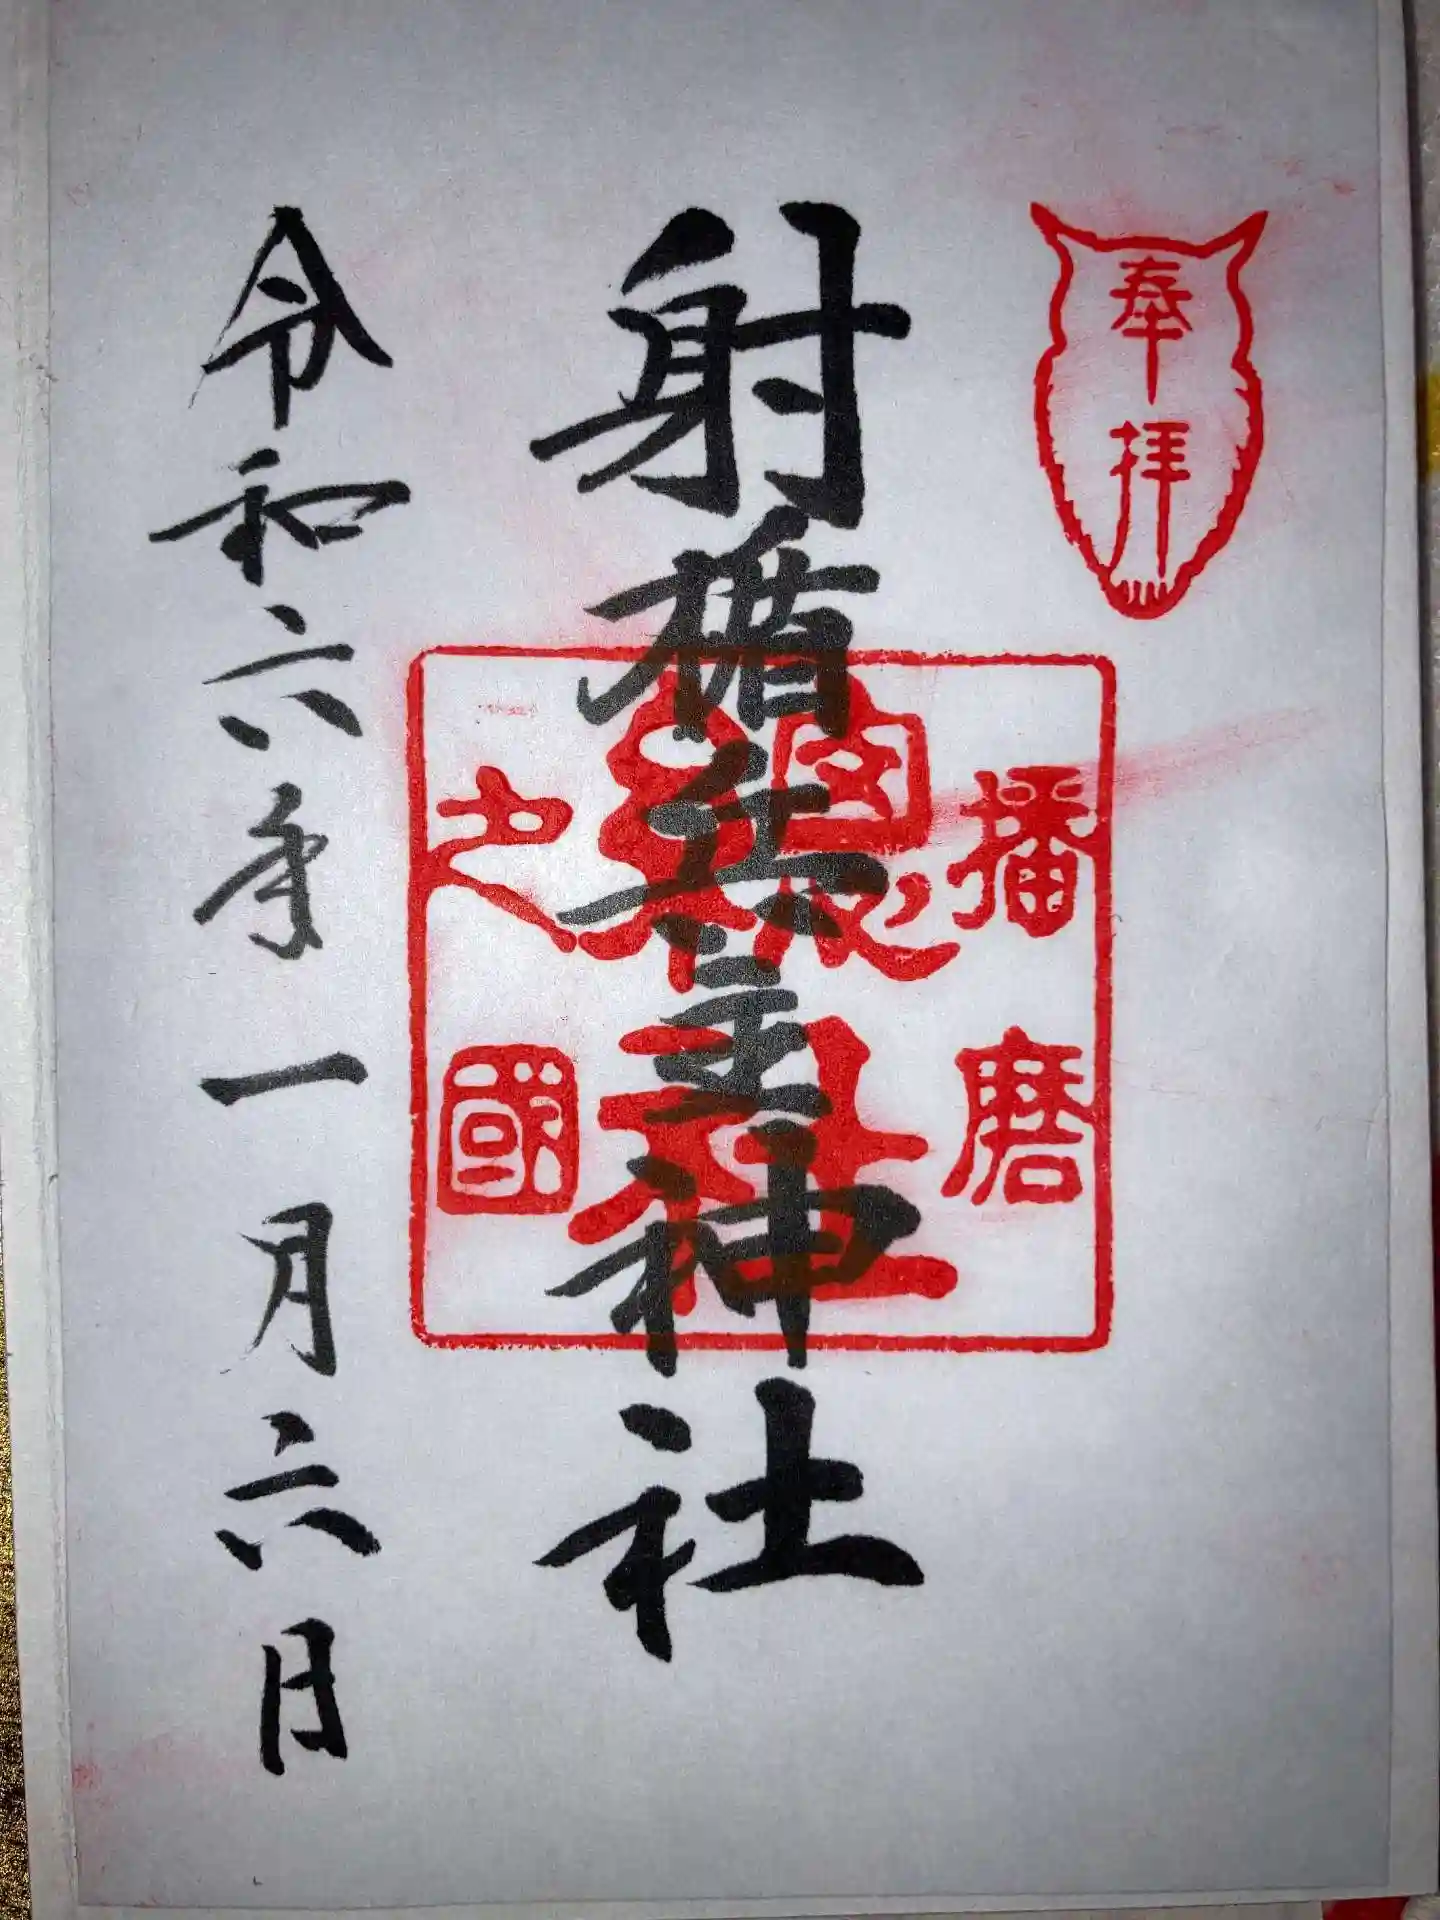 奉拝
射楯兵主神社
播磨
国総社
之國
令和六年一月六日